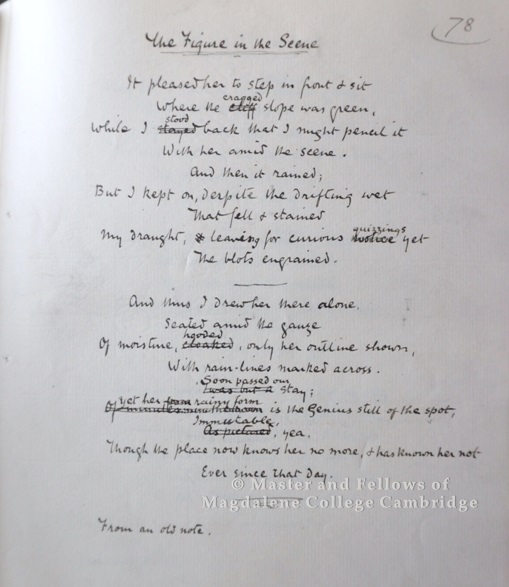 78
The Figure in the Scene
It pleased her to step in front & sit
cragged
Where the cliff slope was green,
stood
While I stayed back that I might pencil it
With her amid the scene.
And then it rained;
But I kept on, despite the drifting wet
That fell & stained
quizzings
My draught, & leaving for curious notice yet
The blots engrained.
And thus I drew her there alone,
Seated amid the gauze
hooded
Of moisture, cloaked, only her outline shown,
With rain-lines marked across.
Soon passed our
stay;
Yet her form rainy form
is the Genius still of the spot,
Immutable,
As pictured, yea.
Though the place now knows her no more, & has known her not
Ever since that day.
From an old note.
© Master and Fellows of
Magdalene College Cambridge